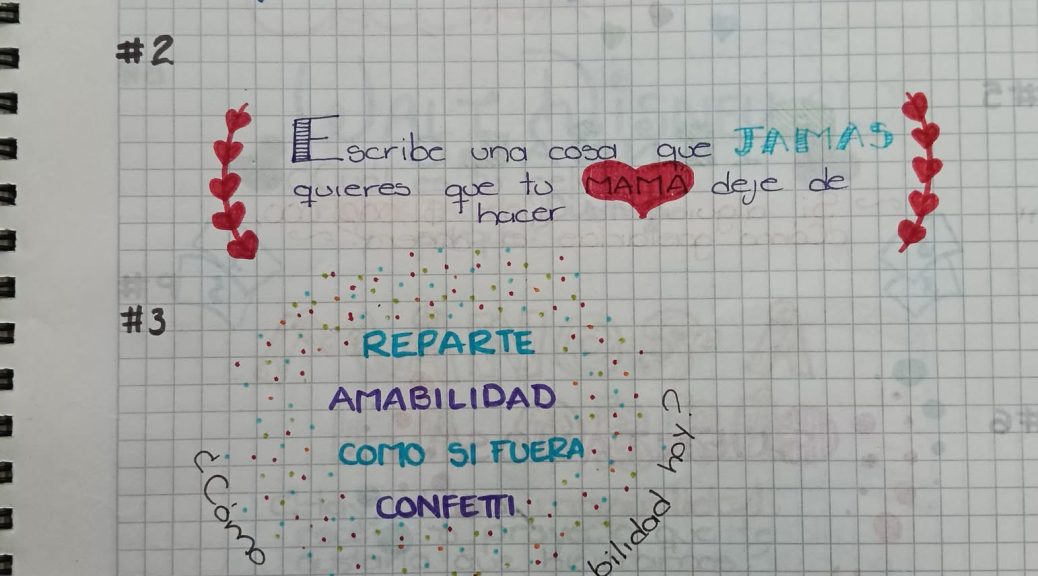 #2
Escribe una cosa que JAMAS
quieres que tu MAMÁ deje de
hacer
#3
REPARTE
AMABILIDAD
COMO SI FUERA
CONFETTI
¿Cómo
bilidad hoy?